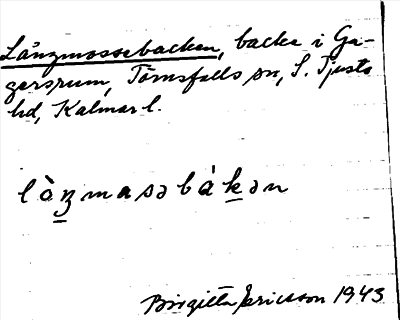 Långmossebacken, backe i Ga-
gersrum, Törnsfalls sn, S. Tjusts
hd, Kalmar l.
lȧŋmasəbákən
Birgitta Ericsson 1943